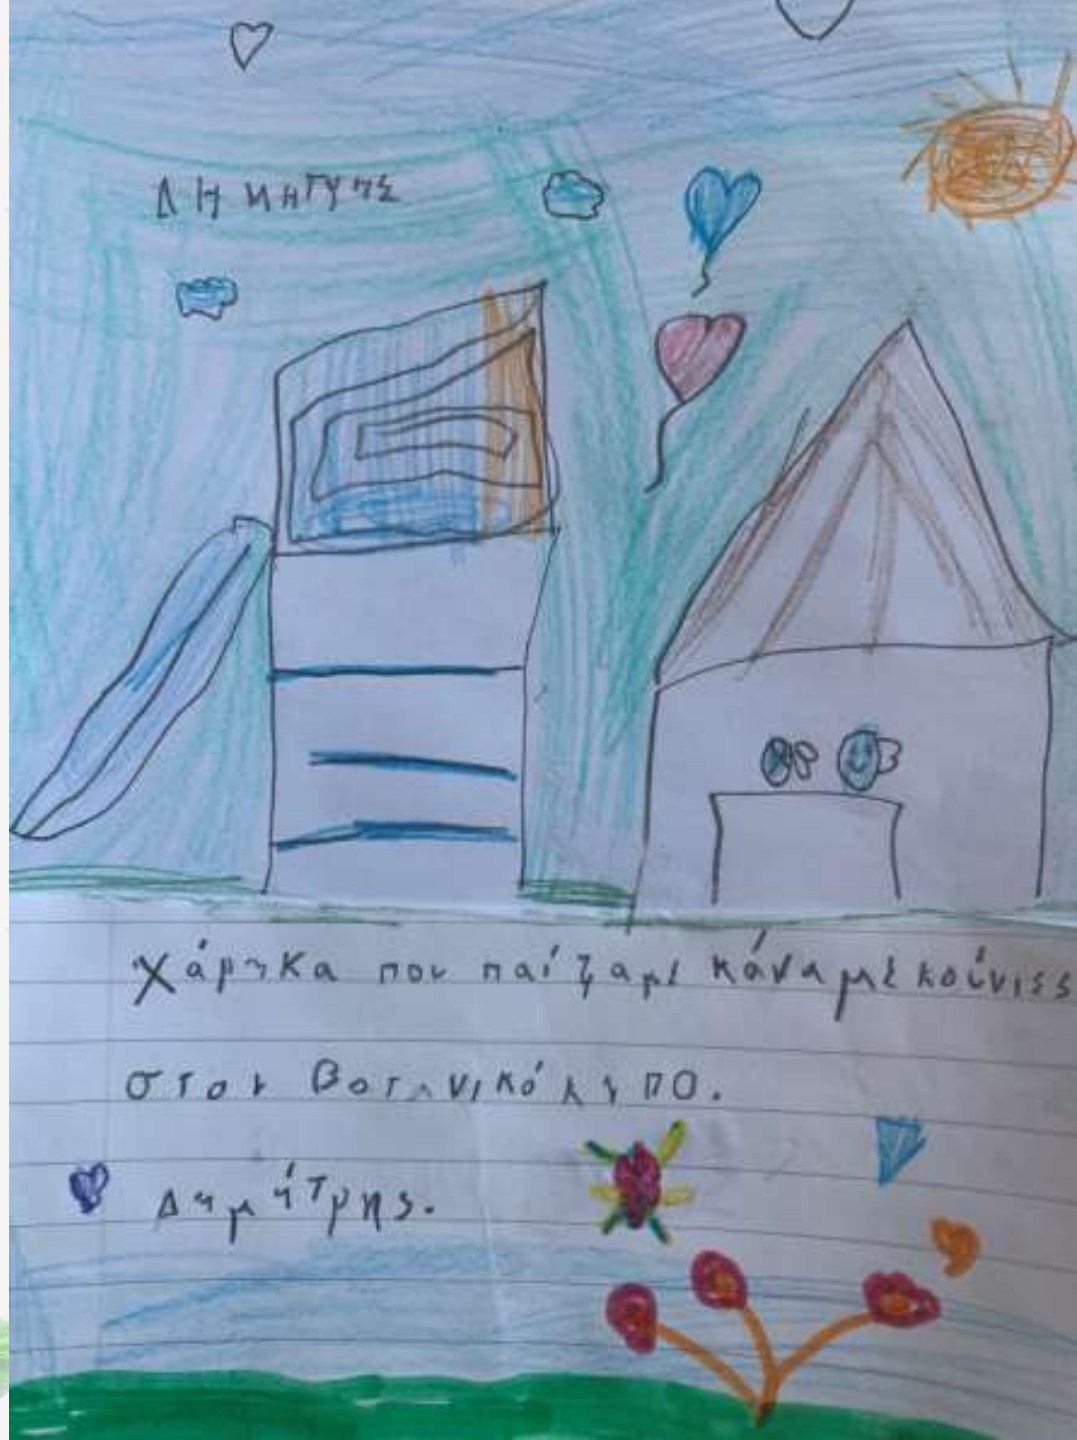 ΔΗΜΗΤΡΗΣ
Χάρηκα που παίζαμε κάναμε κούνιες
στον Βοτανικό κήπο.
Δημήτρης.